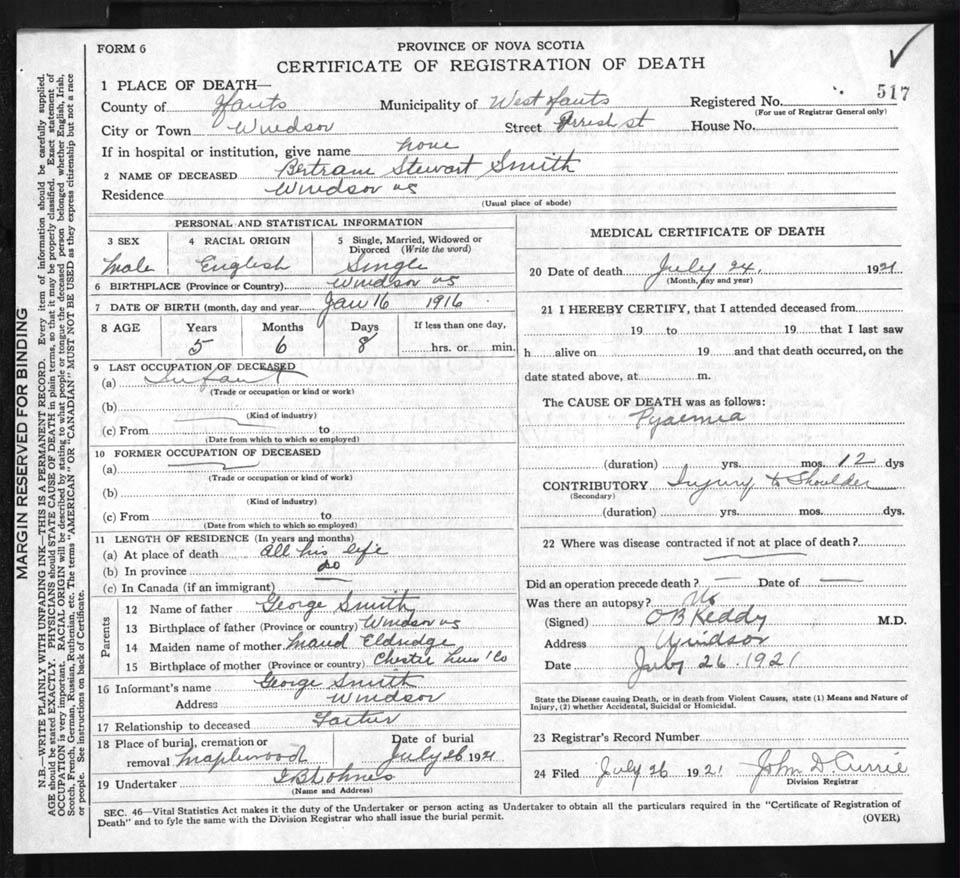 FORM 6
PROVINCE OF NOVA SCOTIA
CERTIFICATE OF REGISTRATION OF DEATH
517
1 PLACE OF DEATH—
County of Hants Municipality of West Hants Registered No.
(For use of Registrar General only)
City or Town Windsor Street st House No.
If in hospital or institution, give name none
2 NAME OF DECEASED Bertram Stewart Smith
Residence Windsor NS
(Usual place of abode)
PERSONAL AND STATISTICAL INFORMATION
3 SEX 4 RACIAL ORIGIN 5 Single, Married, Widowed or
Divorced (Write the word)
Male English Single
6 BIRTHPLACE (Province or Country) Windsor NS
7 DATE OF BIRTH (month, day and year Jan 16 1916
8 AGE Years Months Days If less than one day,
5 6 8 hrs. or min.
9 LAST OCCUPATION OF DECEASED
(a) Infant
(Trade or occupation or kind or work)
(b)
(Kind of industry)
(c) From to
(Date from which to which so employed)
10 FORMER OCCUPATION OF DECEASED
(a)
(Trade or occupation or kind of work)
(b)
(Kind of industry)
(c) From to
(Date from which to which so employed)
11 LENGTH OF RESIDENCE (In years and months)
(a) At place of death all his life
(b) In province do
(c) In Canada (if an immigrant)
Parents
12 Name of father George Smith
13 Birthplace of father (Province or country) Windsor NS
14 Maiden name of mother Maud Eldridge
15 Birthplace of mother (Province or country) Chester Co
16 Informant's name George Smith
Address Windsor
17 Relationship to deceased Father
18 Place of burial, cremation or Date of burial
removal Maplewood July 26 1921
19 Undertaker
(Name and Address)
MEDICAL CERTIFICATE OF DEATH
20 Date of death July 24, 1921
(Month, day and year)
21 I HEREBY CERTIFY, that I attended deceased from
19 to 19 that I last saw
h alive on 19 and that death occurred, on the
date stated above, at m.
The CAUSE OF DEATH was as follows:
Pyaemia
(duration) yrs. mos. 12 dys
CONTRIBUTORY Injury to Shoulder
(Secondary)
(duration) yrs. mos. dys.
22 Where was disease contracted if not at place of death?
Did an operation precede death? — Date of —
Was there an autopsy? No
(Signed) O B Keddy M.D.
Address Windsor
Date July 26 1921
State the Disease causing Death, or in death from Violent Causes, state (1) Means and Nature of
Injury, (2) whether Accidental, Suicidal or Homicidal.
23 Registrar's Record Number
24 Filed July 26 1921 John D. Currie
Division Registrar
SEC. 46—Vital Statistics Act makes it the duty of the Undertaker or person acting as Undertaker to obtain all the particulars required in the "Certificate of Registration of
Death" and to fyle the same with the Division Registrar who shall issue the burial permit.
(OVER)
MARGIN RESERVED FOR BINDING
N.B.—WRITE PLAINLY WITH UNFADING INK—THIS IS A PERMANENT RECORD. Every item of information should be carefully supplied.
AGE should be stated EXACTLY. PHYSICIANS should STATE CAUSE OF DEATH in plain terms, so that it may be properly classified. Exact statement of
OCCUPATION is very important. RACIAL ORIGIN will be described by stating to what people or tongue the deceased person belonged whether English, Irish,
Scotch, French, German, Russian, Ruthenian, etc. The terms "AMERICAN" OR "CANADIAN" MUST NOT BE USED as they express citizenship but not a race
or people. See instructions on back of Certificate.